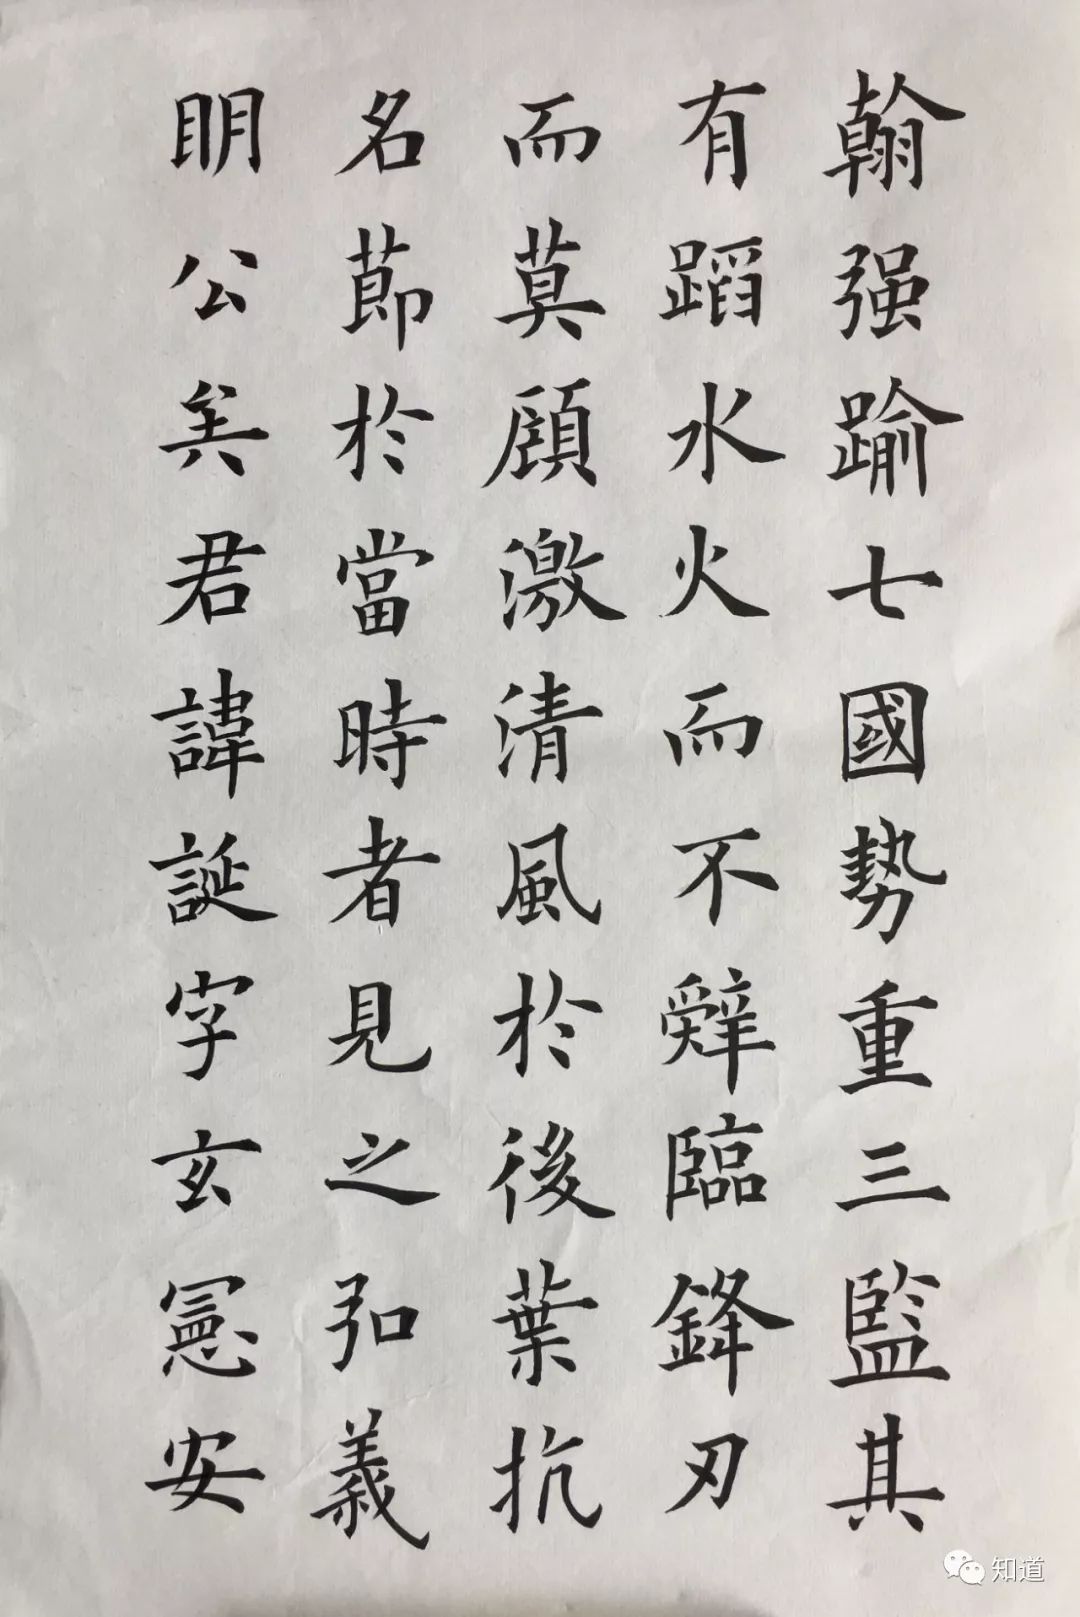 翰强踰七國勢重三監其
有蹈水火而不辤臨鋒刃
而莫顧激清風於後葉抗
名節於當時者見之弘義
明公矣君諱誕字玄憲安
知道